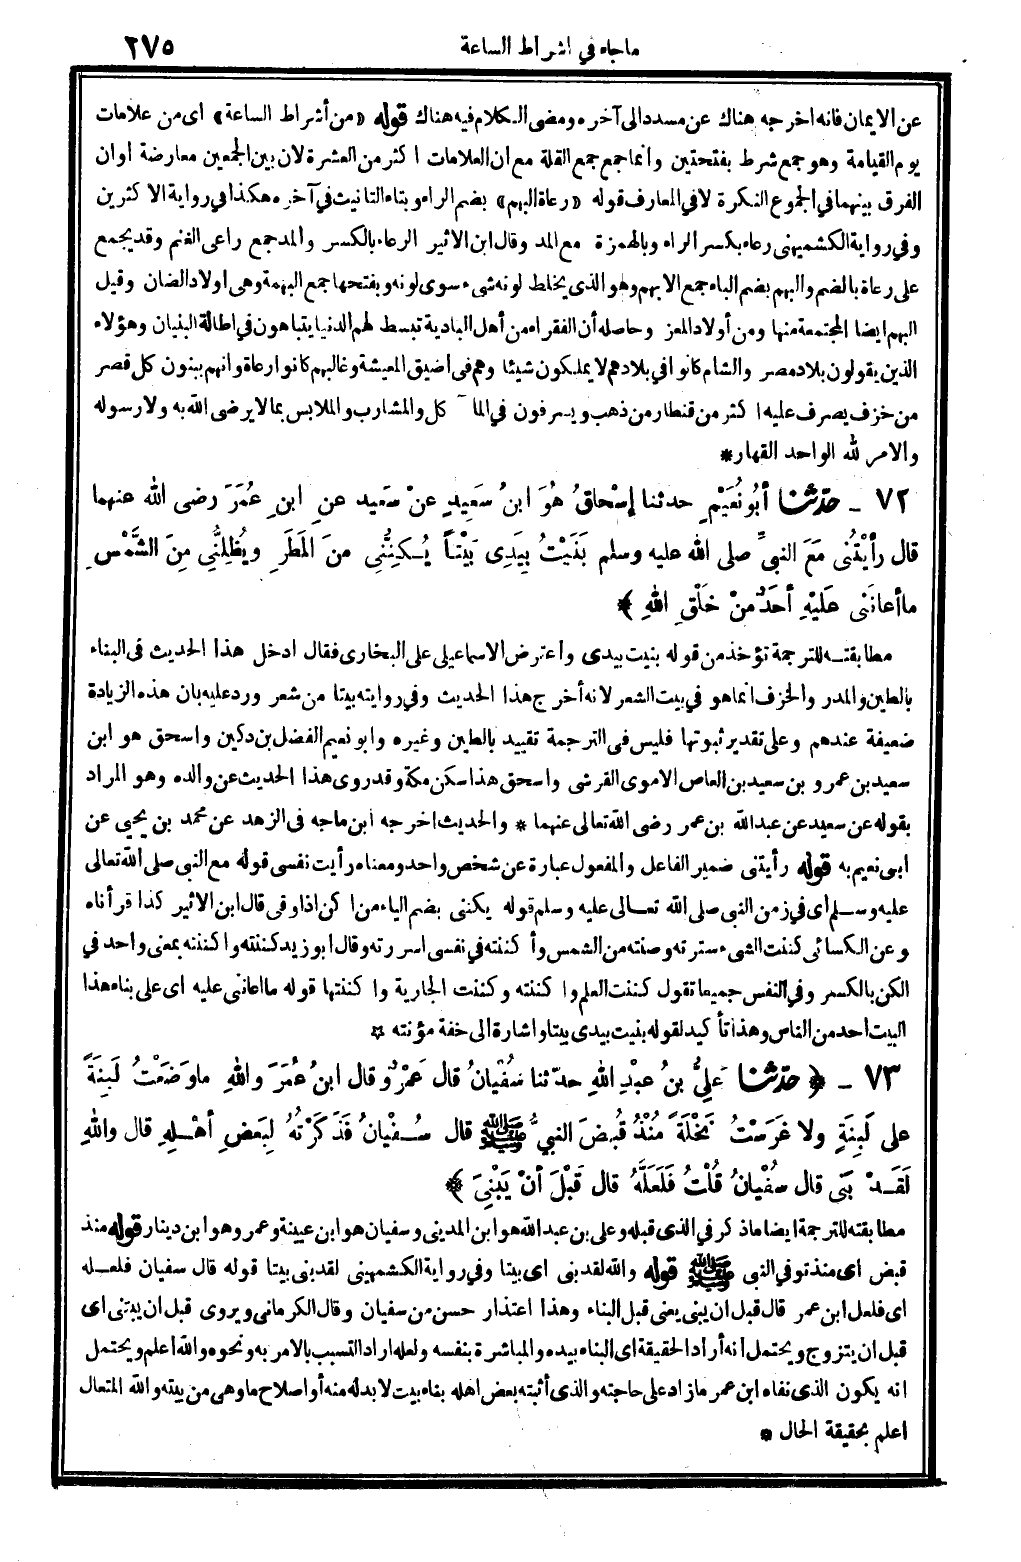 ماجاء في اشراط الساعة ٢٧٥
عن الايمان فانه اخرجه هناك عن مسدد الى آخره ومضى الكلام فيه هناك قوله «من أشراط الساعة» اى من علامات
يوم القيامة وهو جمع شرط بفتحتين وانما جمع جمع القلة مع ان العلامات اكثر من العشرة لان بين الجمعين معارضة او ان
الفرق بينهما في الجموع النكرة لا في المعارف قوله «رعاة البهم» بضم الراء وبتاء التانيث في آخره هكذا في رواية الاكثرين
وفي رواية الكشميهنى رعاء بكسر الراء وبالهمزة مع المد وقال ابن الاثير الرعاء بالكسر والمد جمع راعى الغنم وقد يجمع
على رعاة بالضم والبهم بضم الباء جمع الابهم وهو الذى يخلط لونه شىء سوى لونه وبفتحها جمع البهمة وهى اولاد الضان وقيل
البهم ايضا المجتمعة منها ومن أولاد المعز وحاصله أن الفقراء من أهل البادية تبسط لهم الدنيا يتباهون في اطالة البنيان وهؤلاء
الذين يقولون بلاد مصر والشام كانوا في بلادهم لا يملكون شيئا وهم فى أضيق المعيشة وغالبهم كانوا رعاة وانهم يبنون كل قصر
من خزف يصرف عليه اكثر من قنطار من ذهب ويسرفون في المآكل والمشارب والملابس بما لا يرضى الله به ولا رسوله
والامر لله الواحد القهار *
٧٢ ـ حدّثنا أبُو نُعَيْمٍ حدثنا إسْحاقُ هُوَ ابنُ سَعِيدٍ عنْ سَعيد عنِ ابنِ عُمَرَ رضى الله عنهما
قال رأيْتُنِى مَعَ النبىِّ صلى الله عليه وسلم بَنَيْتُ بِيَدِى بَيْتاً يُكِنُّنِى مِنَ المَطَرِ ويُظِلُّنِى مِنَ الشَّمْسِ
ما أعانَنى عَلَيْهِ أحَدٌ مِنْ خَلْقِ اللهِ ﴾
مطابقته للترجمة تؤخذ من قوله بنيت بيدى واعترض الاسماعيلى على البخارى فقال ادخل هذا الحديث فى البناء
بالطين والمدر والخزف انما هو في بيت الشعر لانه أخرج هذا الحديث وفي روايته بيتا من شعر ورد عليه بان هذه الزيادة
ضعيفة عندهم وعلى تقدير ثبوتها فليس فى الترجمة تقييد بالطين وغيره وابو نعيم الفضل بن دكين واسحق هو ابن
سعيد بن عمرو بن سعيد بن العاص الاموى القرشى واسحق هذا سكن مكة وقد روى هذا الحديث عن والده وهو المراد
بقوله عن سعيد عن عبد الله بن عمر رضى الله تعالى عنهما * والحديث اخرجه ابن ماجه فى الزهد عن محمد بن يحيى عن
ابى نعيم به قوله رأيتنى ضمير الفاعل والمفعول عبارة عن شخص واحد ومعناه رأيت نفسى قوله مع النبى صلى الله تعالى
عليه وسلم اى في زمن النبى صلى الله تعالى عليه وسلم قوله يكننى بضم الياء من اكن اذا وقى قال ابن الاثير كذا قرأناه
وعن الكسائى كننت الشىء سترته وصنته من الشمس وأكننته في نفسى اسررته وقال ابو زيد كننته واكننته بمعنى واحد في
الكن بالكسر وفي النفس جميعا تقول كننت العلم واكننته وكننت الجارية واكننتها قوله ما اعاننى عليه اى على بناء هذا
البيت احد من الناس وهذا تأكيد لقوله بنيت بيدى بيتا واشارة الى خفة مؤنته *
٧٣ ـ ﴿ حدّثنا عَلِىُّ بنُ عبْدِ اللهِ حدّثنا سُفْيانُ قال عَمْرٌو قال ابنُ عُمَرَ واللهِ ما وَضَعْتُ لَبِنَةً
على لَبِنَةٍ ولا غَرَسْتُ نَخْلَةً مُنْذُ قُبِضَ النبىُّ ﷺ قال سُفْيانُ فَذَكَرْتُهُ لِبَعْضِ أهْلِهِ قال واللهِ
لَقَدْ بَنَى قال سُفْيانُ قُلْتُ فَلَعَلَّهُ قال قَبْلَ أنْ يَبْنِىَ ﴾
مطابقته للترجمة ايضا ما ذكر في الذى قبله وعلى بن عبد الله هو ابن المدينى وسفيان هو ابن عيينة وعمرو هو ابن دينار قوله منذ
قبض اى منذ توفي النبى ﷺ قوله والله لقد بنى اى بيتا وفي رواية الكشميهنى لقد بنى بيتا قوله قال سفيان فلعله
اى فلعل ابن عمر قال قبل ان يبنى يعنى قبل البناء وهذا اعتذار حسن من سفيان وقال الكرمانى ويروى قبل ان يبتنى اى
قبل ان يتزوج ويحتمل انه أراد الحقيقة اى البناء بيده والمباشرة بنفسه ولعله اراد التسبب بالامر به ونحوه والله أعلم ويحتمل
انه يكون الذى نفاه ابن عمر ما زاد على حاجته والذى أثبته بعض اهله بناء بيت لا بد له منه أو اصلاح ما وهى من بيته والله المتعال
اعلم بحقيقة الحال *